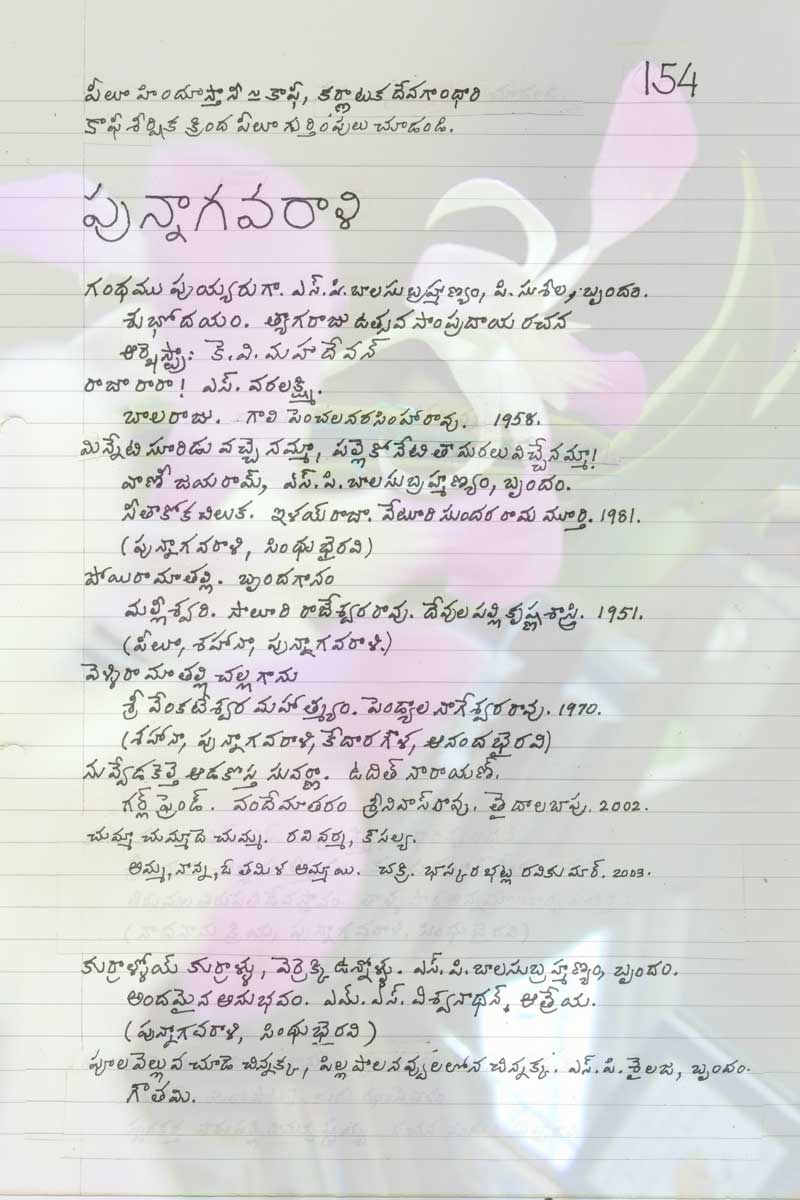 154
పీలూ హిందూస్తానీ ≃ కాఫీ, కర్ణాటక దేవగాంధారి
కాఫీ శీర్షిక క్రింద పీలూ గుర్తింపులు చూడండి.
పున్నాగవరాళి
గంధము పుయ్యరుగా. ఎస్.పి.బాలసుబ్రహ్మణ్యం, పి.సుశీల, బృందం.
శుభోదయం. త్యాగరాజు ఉత్సవ సాంప్రదాయ రచన
ఆర్కెస్ట్రా: కె.వి.మహాదేవన్
రాజా రారా! ఎస్. వరలక్ష్మి.
బాలరాజు. గాలి పెంచలనరసింహారావు. 1958.
మిన్నేటి సూరిడు వచ్చెనమ్మా, పల్లె కోనేటి తామరలు విచ్చేనమ్మా!
వాణీ జయరామ్, ఎస్.పి.బాలసుబ్రహ్మణ్యం, బృందం.
సీతాకోక చిలుక. ఇళయ్ రాజా. వేటూరి సుందర రామ మూర్తి. 1981.
(పున్నాగవరాళి, సింధుభైరవి)
పోయిరామాతల్లి. బృందగానం
మల్లీశ్వరి. సాలూరి రాజేశ్వరరావు. దేవులపల్లి కృష్ణశాస్త్రి. 1951.
(పీలూ, శహానా, పున్నాగవరాళి.)
వెళ్ళిరామాతల్లి చల్లగాను
శ్రీ వేంకటేశ్వర మహాత్మ్యం. పెండ్యాల నాగేశ్వరరావు. 1970.
(శహానా, పున్నాగవరాళి, కేదారగౌళ, ఆనందభైరవి)
నువ్వేడకెల్తె ఆడకొస్త సువర్ణా. ఉదిత్ నారాయణ్.
గర్ల్ ఫ్రెండ్. వందేమాతరం శ్రీనివాస్ రావు. తైదాలబాపు. 2002.
చుమ్మా చుమ్మాదె చుమ్మ. రవివర్మ, కౌసల్య.
అమ్మ, నాన్న, ఓ తమిళ అమ్మాయి. చక్రి. భాస్కరభట్ల రవికుమార్. 2003.
కుర్రాళ్ళోయ్ కుర్రాళ్ళు, వెర్రెక్కి ఉన్నోళ్ళు. ఎస్.పి.బాలసుబ్రహ్మణ్యం, బృందం.
అందమైన అనుభవం. ఎమ్.ఎస్. విశ్వనాథన్. ఆత్రేయ.
(పున్నాగవరాళి, సింధుభైరవి)
పూలవెల్లువ చూడె చిన్నక్క, పిల్ల పాలనవ్వులలోన చిన్నక్క. ఎస్.పి.శైలజ, బృందం.
గౌతమి.